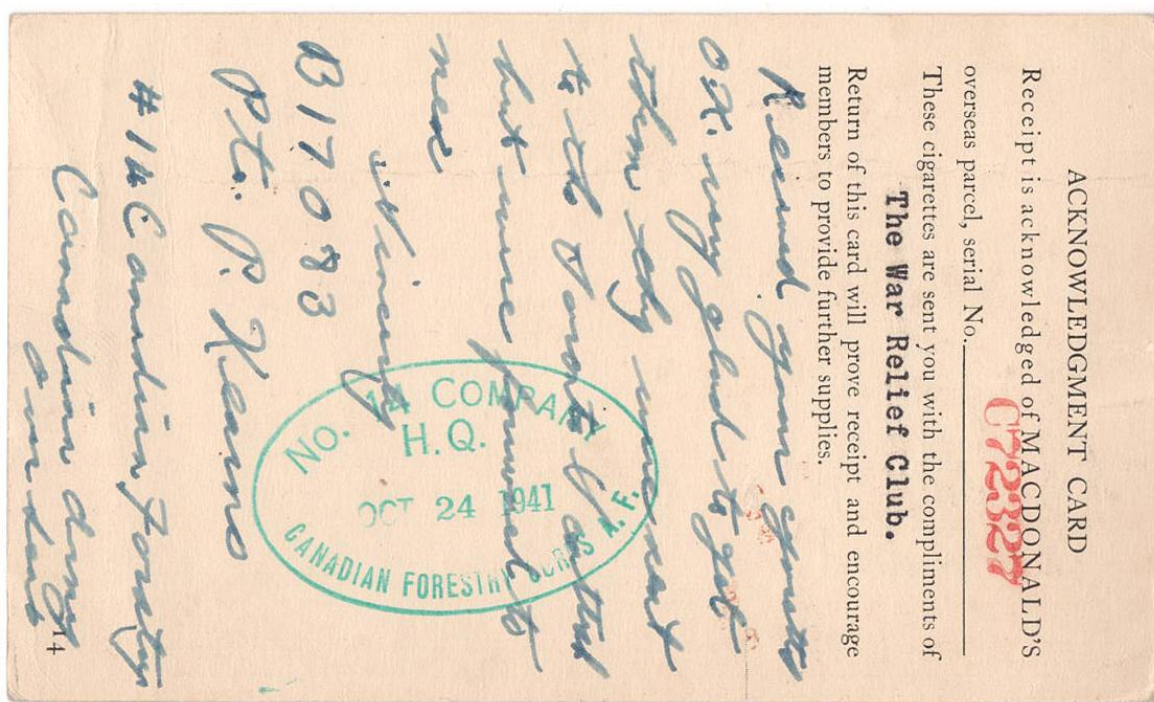 ACKNOWLEDGMENT CARD
Receipt is acknowledged of MACDONALD'S
overseas parcel, serial No. C72327
These cigarettes are sent you with the compliments of
The War Relief Club.
Return of this card will prove receipt and encourage
members to provide further supplies.
Received your
OK. very glad to get
them they were sent
to the
but were forward to
me
Sincerely
B170883
Pte. P. Kearns
#14 Canadian Forestry
Canadian Army
14
NO. 14 COMPANY
H.Q.
OCT 24 1941
CANADIAN FORESTRY CORPS A.F.